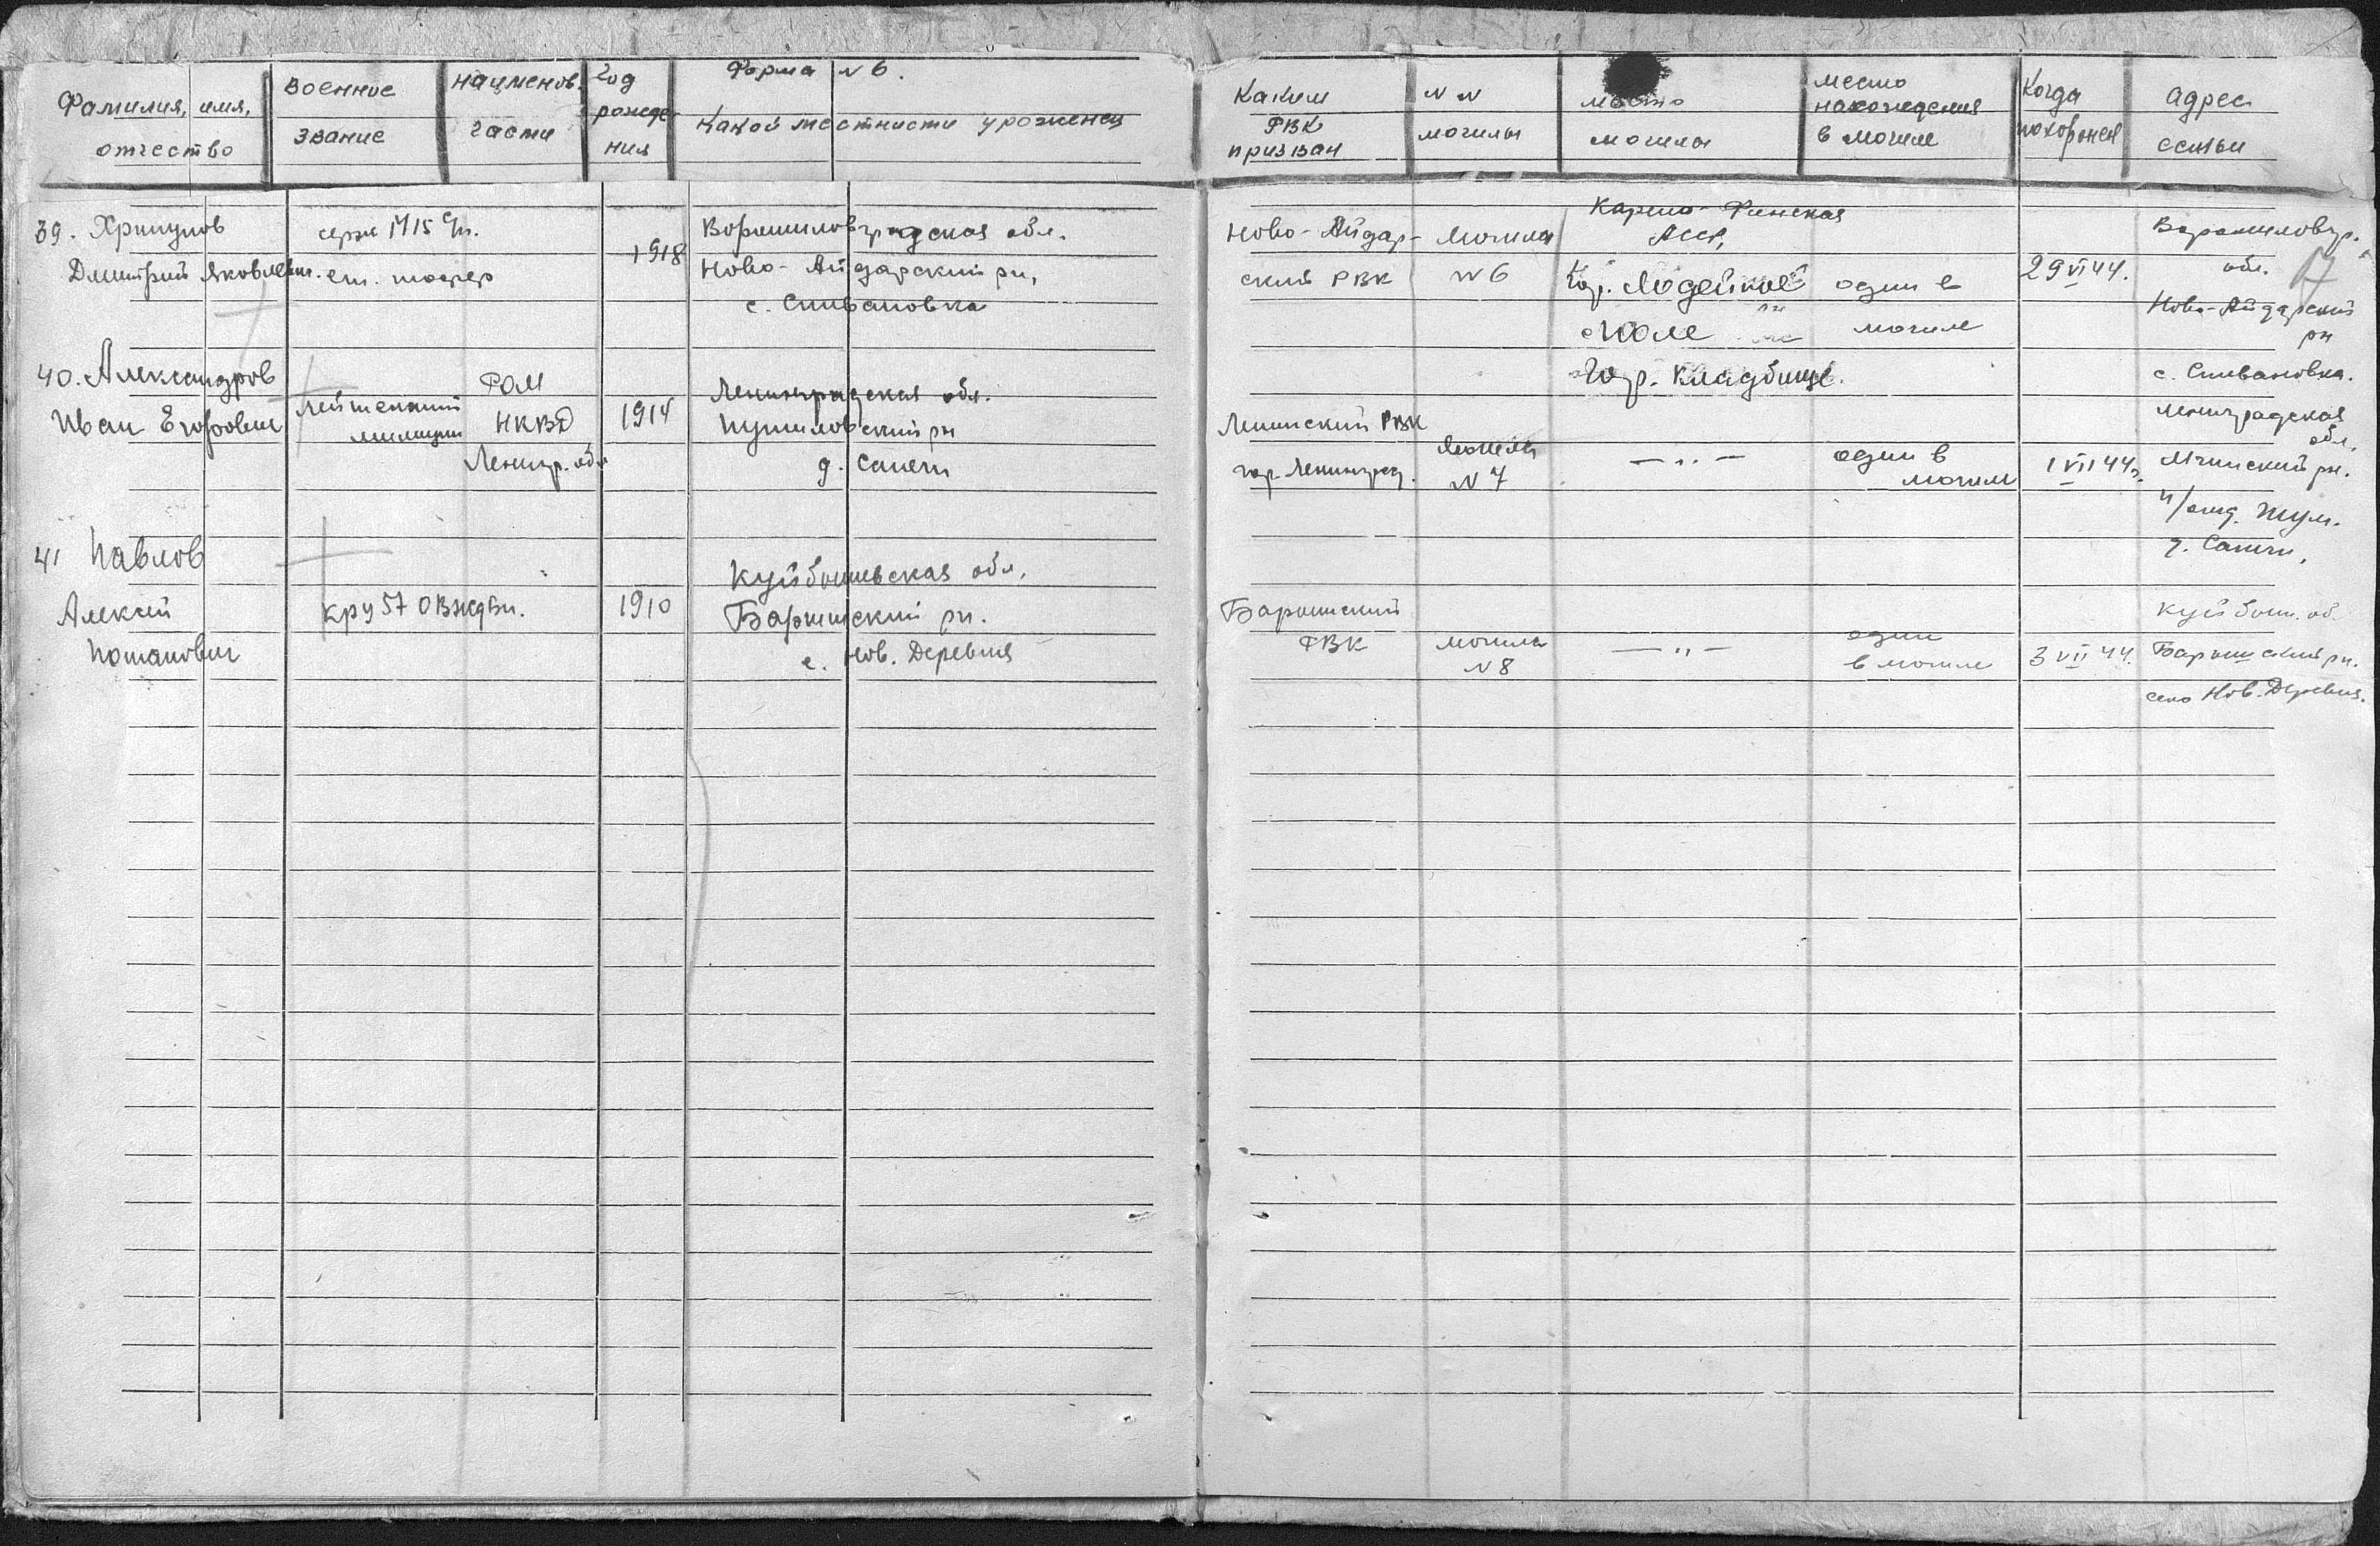 Форма N 6.
Фамилия, имя, отчество
Военное звание
наименов. части
Год рождения
Какой местности уроженец
Каким РВК призван
N N могилы
место могилы
место нахождения в могиле
Когда похоронен
адрес семьи
39. Хрипунов
Дмитрий Яковлевич.
серж 1715
ст. тофер
1918
Ворошиловградская обл.
Ново-Айдарский рн,
с. Спивановка
Ново-Айдар-
ский РВК
могила
N 6
Карело-Финская
АССР,
гор. Лодейное
Поле
Гор. Кладбище.
один в
могиле
29 VI 44.
Ворошиловгр.
обл.
17
Ново-Айдарский
рн
с. Спивановка.
40. Александров
Иван Егорович
лейтенант
милиции
РОМ
НКВД
Ленингр. обл
1914
Ленинградская обл.
рн
д. Сапечи
Ленинский РВК
гор. Ленинград.
могила
N 7
— „ —
один в
могиле
1 VII 44г.
Ленинградская
обл.
Мгинский рн.
п/отд.
д. Сапечи,
41 Павлов
Алексей
Потапович
кр 957 ОВждбн.
1910
Куйбышевская обл,
Барышский рн.
с. Нов. Деревня
Барышский
РВК
могила
N 8
— „ —
один
в могиле
3 VII 44.
Куйбыш. об.
Барышский рн.
село Нов. Деревня.